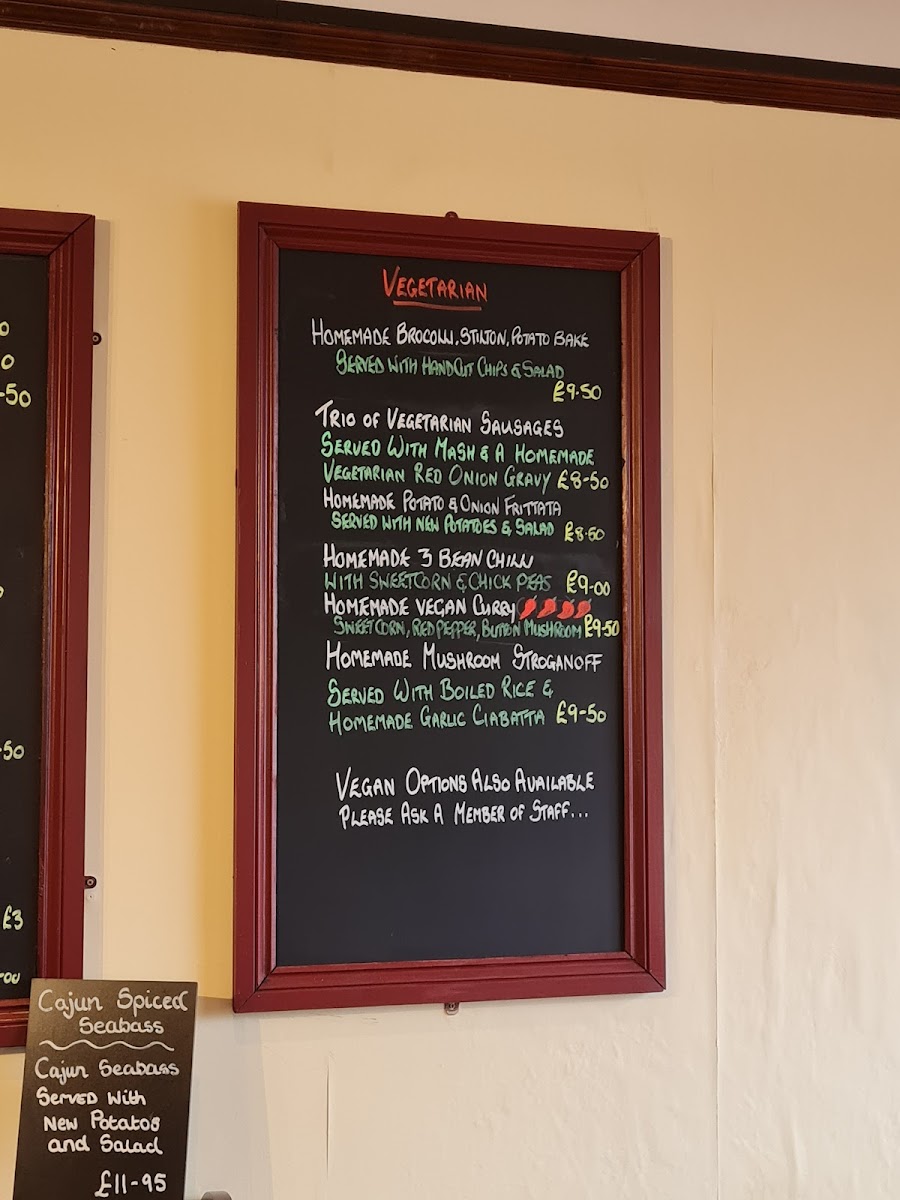 VEGETARIAN
HOMEMADE BROCOLLI, STILTON, POTATO BAKE
SERVED WITH HANDCUT CHIPS & SALAD
£9.50
TRIO OF VEGETARIAN SAUSAGES
SERVED WITH MASH & A HOMEMADE
VEGETARIAN RED ONION GRAVY £8-50
HOMEMADE POTATO & ONION FRITTATA
SERVED WITH NEW POTATOES & SALAD £8.50
HOMEMADE 3 BEAN CHILLI
WITH SWEETCORN & CHICK PEAS £9-00
HOMEMADE VEGAN CURRY
SWEETCORN, RED PEPPER, BUTTON MUSHROOM £9-50
HOMEMADE MUSHROOM STROGANOFF
SERVED WITH BOILED RICE &
HOMEMADE GARLIC CIABATTA £9-50
VEGAN OPTIONS ALSO AVAILABLE
PLEASE ASK A MEMBER OF STAFF...
-50
-50
£3
Cajun Spiced
Seabass
Cajun Seabass
SERVED with
NEW Potatos
and Salad
£11-95